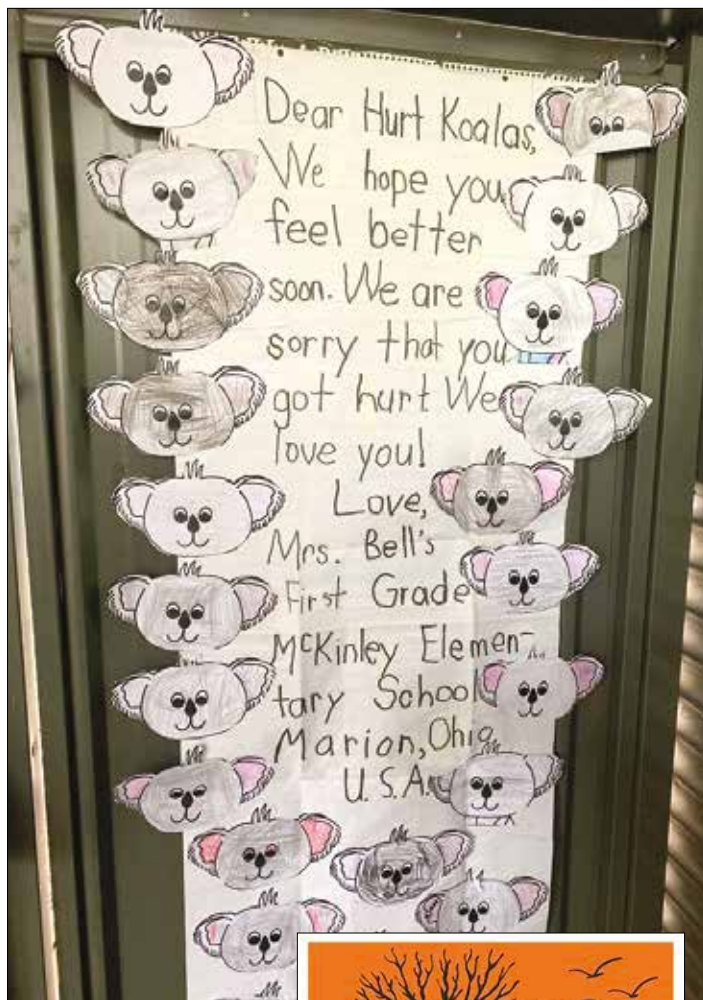 Dear Hurt Koalas,
We hope you
feel better
soon. We are
sorry that you
got hurt We
love you!
Love,
Mrs. Bell's
First Grade
McKinley Elemen-
tary School
Marion, Ohio
U.S.A.